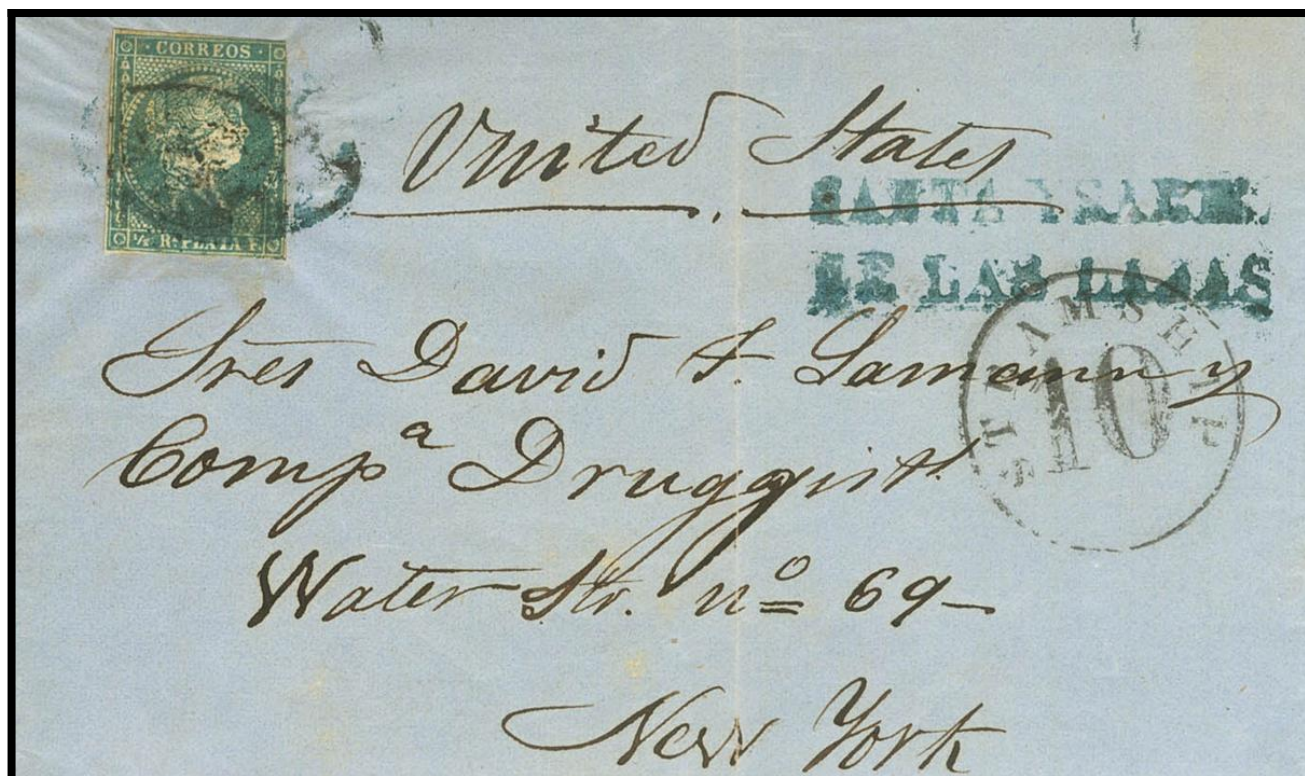 · CORREOS ·
½ R. PLATA F.
United States
SANTA YSABEL
DE LAS LAJAS
STEAMSHIP
10
Sres David T. Lamann y
Compª Druggist
Water Str. nº 69
New York